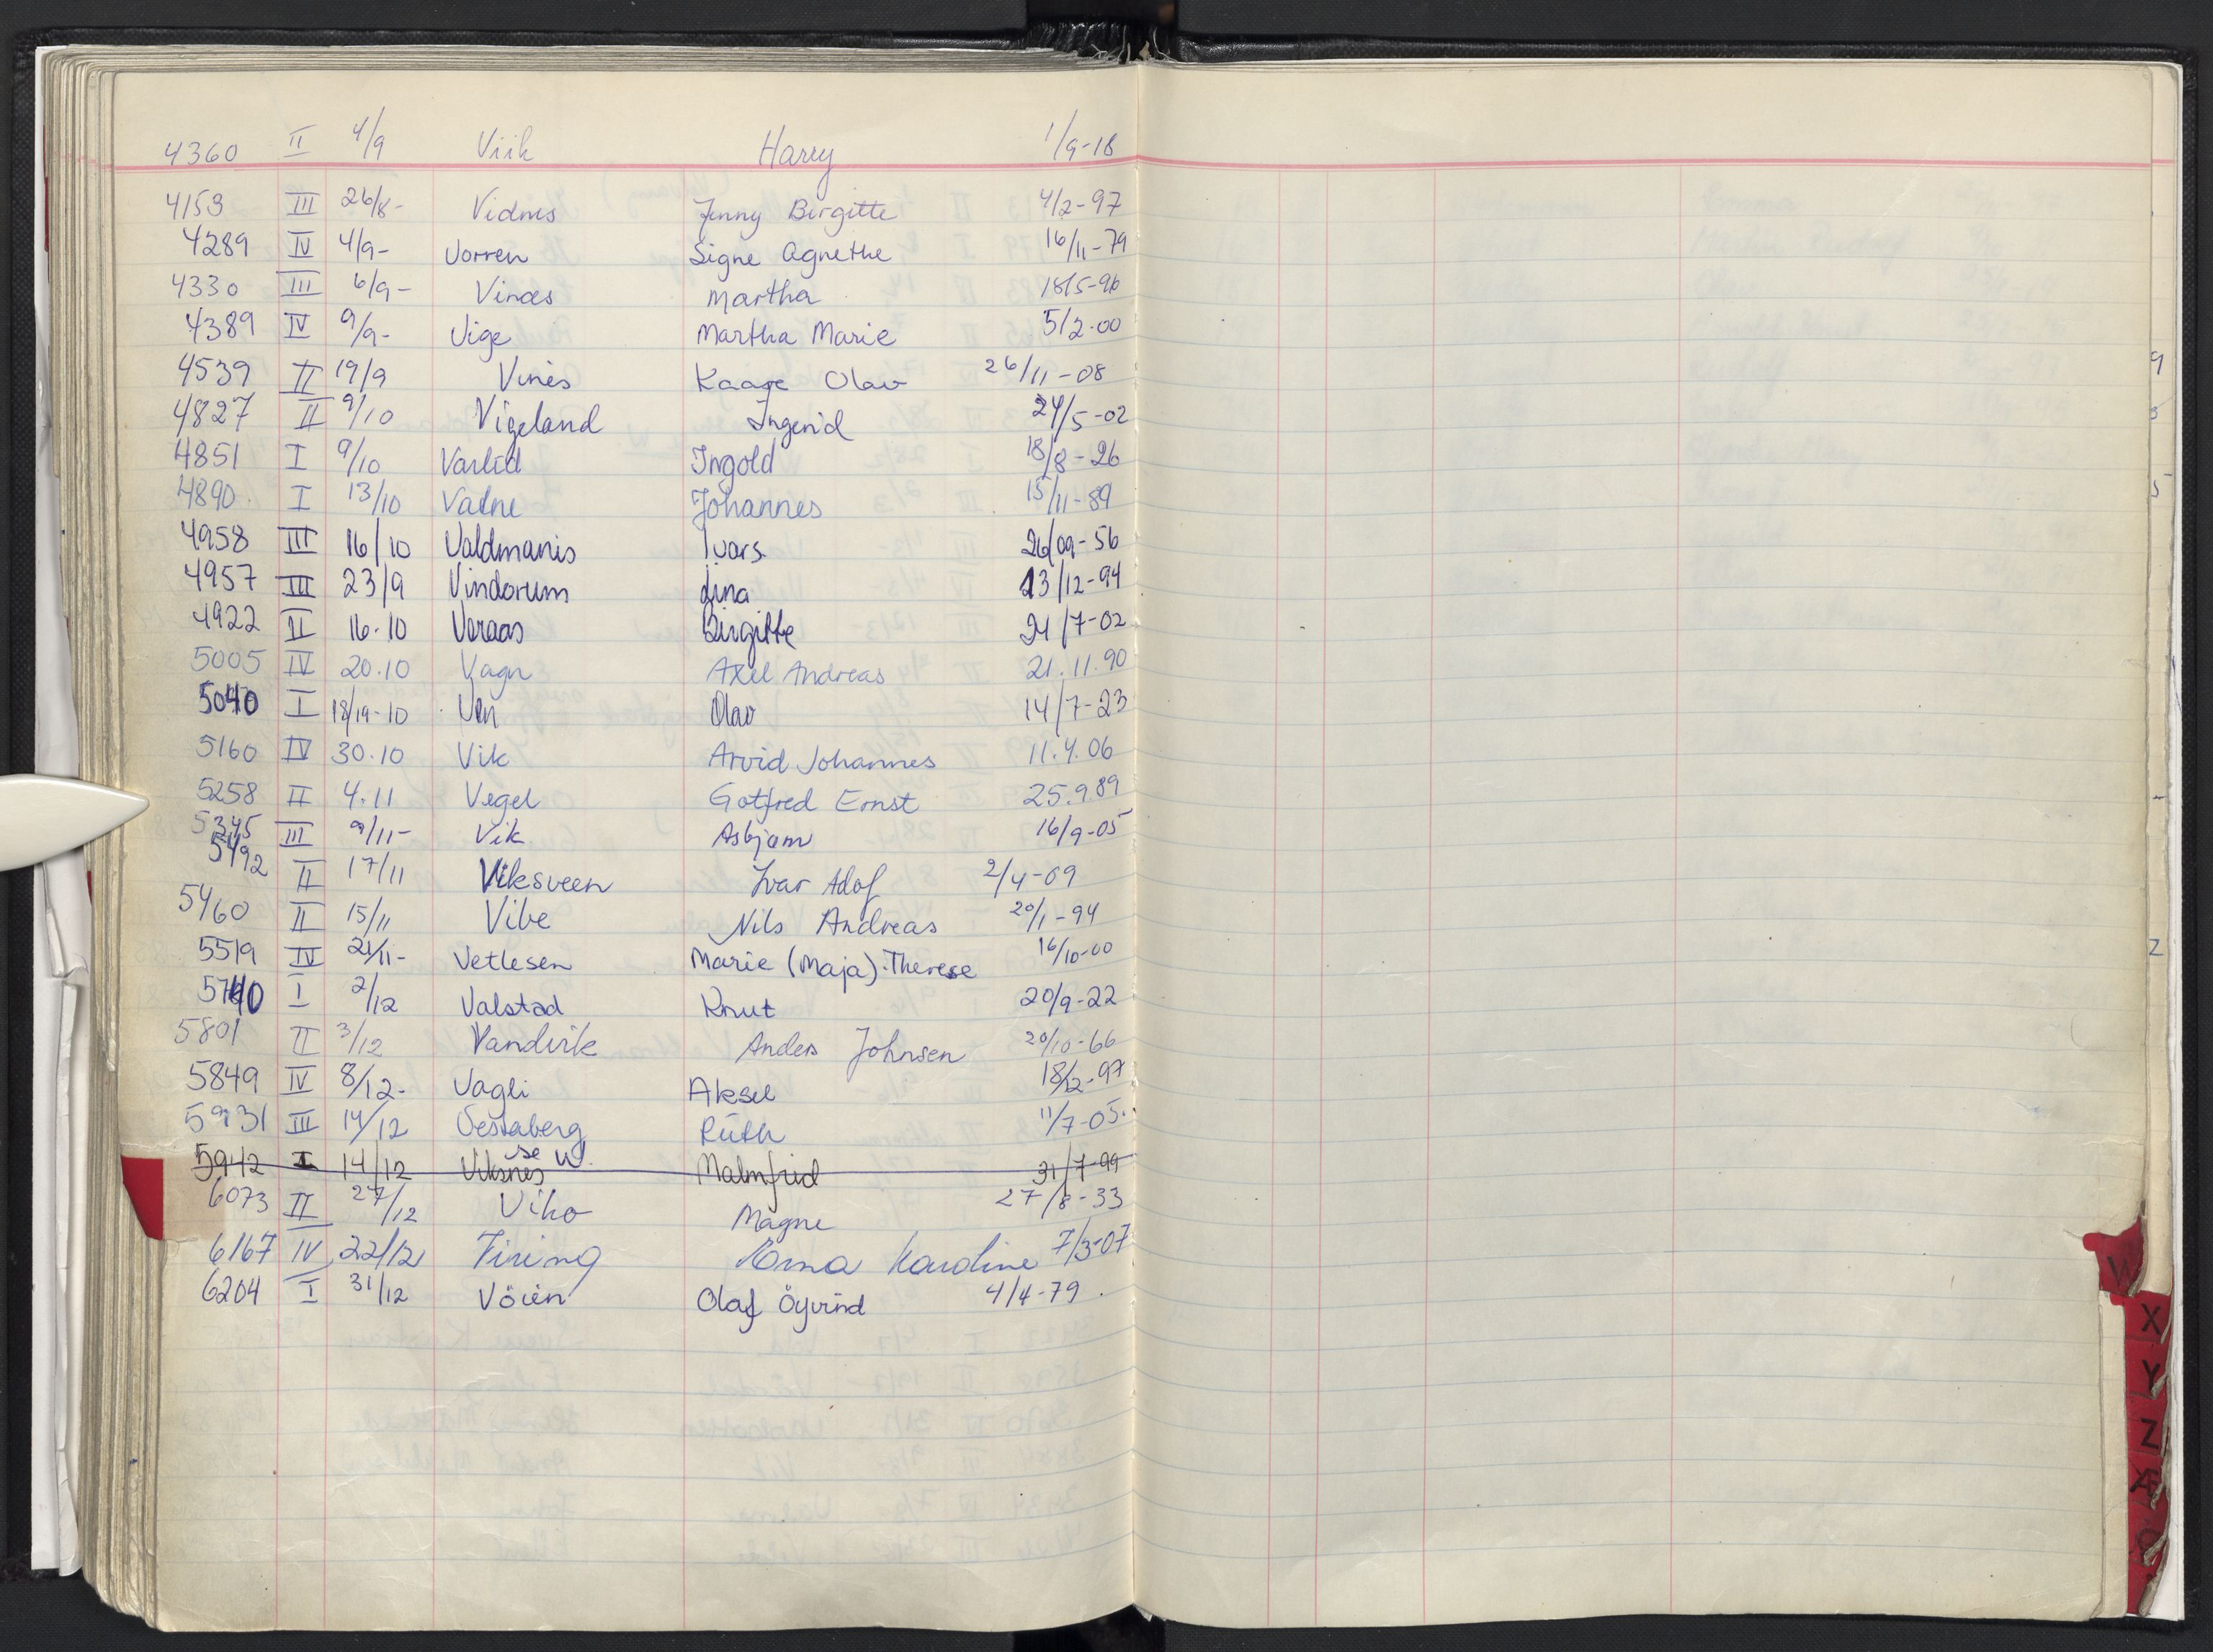 4360 II 4/9 Viik Harry 1/9-18
4153 III 26/8- Vidnes Jenny Birgitte 4/2-97
4289 IV 4/9- Vorren Signe Agnethe 16/11-79
4330 III 6/9- Vinæs Martha 18/5-96
4389 IV 9/9- Vige Martha Marie 5/2-00
4539 II 19/9 Vinès Kaare Olav 26/11-08
4827 II 9/10 Vigeland Ingerid 24/5-02
4851 I 9/10 Varlid Ingold 18/8-26
4890. I 13/10 Vatne Johannes 15/11-89
4958 III 16/10 Valdmanis Ivars 26/09-56
4957 III 23/9 Vindorum Lina 13/12-94
4922 II 16.10 Voraas Birgitte 21/7-02
5005 IV 20.10 Vagn Axel Andreas 21.11.90
5040 I 18/19-10 Ven Olav 14/7-23
5160 IV 30.10 Vik Arvid Johannes 11.4.06
5258 II 4.11 Vegel Gotfred Ernst 25.9.89
5345 III 9/11- Vik Asbjørn 16/9-05
5492 II 17/11 Viksveen Ivar Adof 2/4-09
5460 II 15/11 Vibe Nils Andreas 20/1-94
5519 IV 21/11- Vetlesen Marie (Maja) Therese 16/10-00
5740 I 2/12 Valstad Knut 20/9-22
5801 II 3/12 Vandvik Anders Johnsen 20/10-66
5849 IV 8/12- Vagli Aksel 18/12-97
5931 III 14/12 Vestaberg Ruth 11/7-05.
se W.
5942 I 14/12 Viksnes Malmfrid 31/7-99
6073 II 27/12 Viko Magne 27/8-33
6167 IV 22/12 Viring Erna Karoline 7/3-07
6204 I 31/12 Vöien Olaf Öyvind 4/4-79.
W
X
Y
Z
Æ